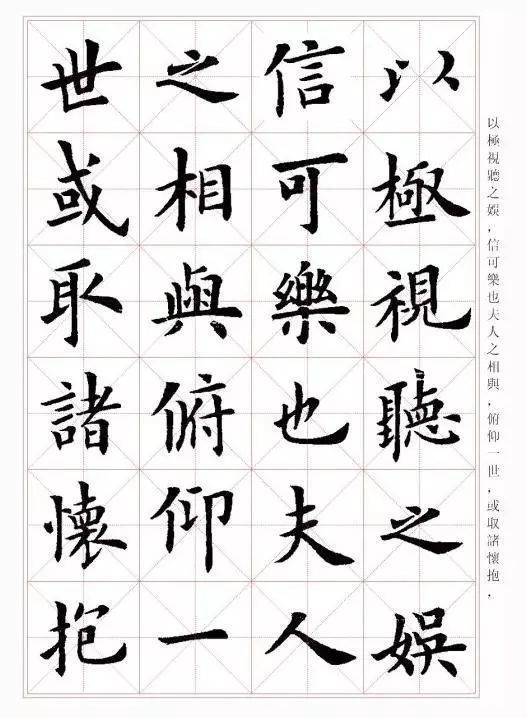 以極視聽之娛
信可樂也夫人
之相與俯仰一
世或取諸懷抱
以極視聽之娛，信可樂也夫人之相與，俯仰一世，或取諸懷抱，